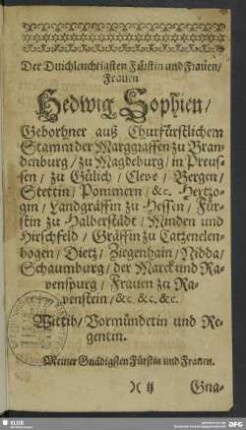 Der Durchleuchtigsten Fürstin und Frauen/
Frauen
Hedwig Sophien/
Gebohrner auß Churfürstlichem
Stamm der Marggraffen zu Bran-
denburg / zu Magdeburg / in Preus-
sen / zu Gülich / Cleve / Bergen /
Stettin / Pommern / &c. Hertzo-
gin / Landgräffin zu Hessen / Für-
stin zu Halberstadt / Minden und
Hirschfeld / Gräffin zu Catzenelen-
bogen / Dietz / Ziegenhain / Nidda /
Schaumburg / der Marck und Ra-
venspurg / Frauen zu Ra-
venstein / &c. &c. &c.
Wittib / Vormünderin und Re-
gentin.
Meiner Gnädigsten Fürstin und Frauen.
Gna-